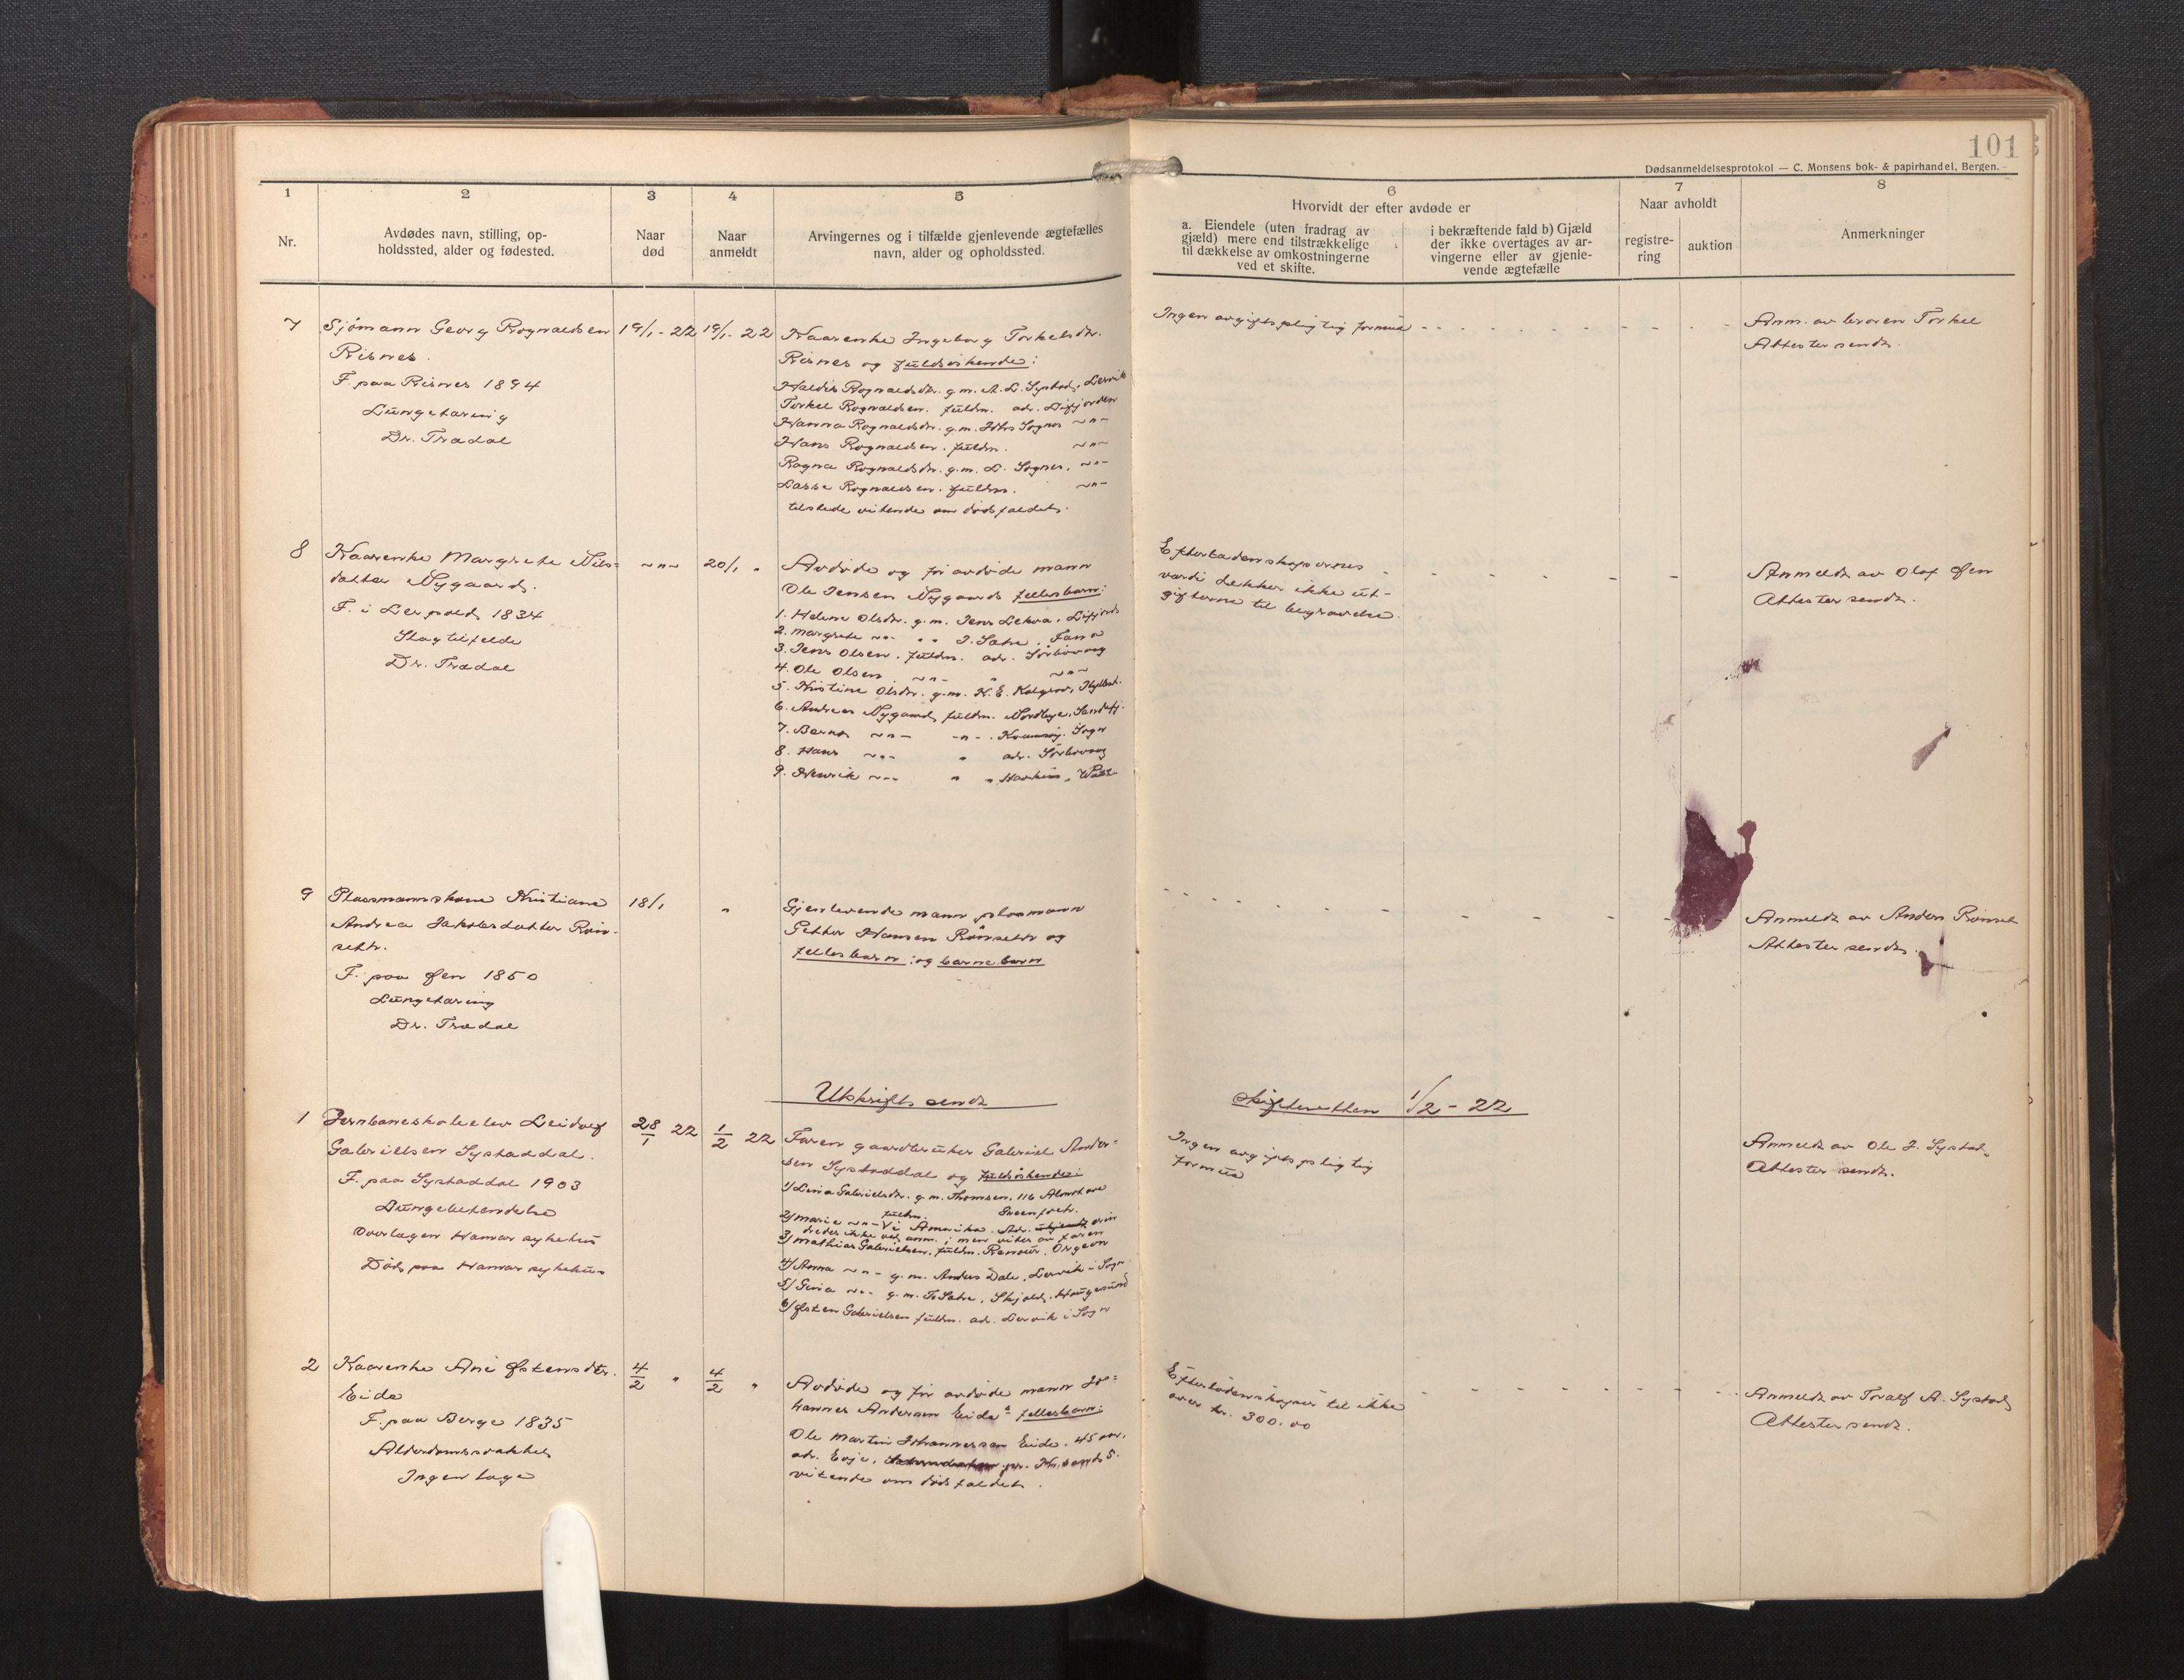 101
Dødsanmeldelsesprotokol — C. Monsens bok- & papirhandel, Bergen.
1
2
3
4
5
6
7
8
Nr.
Avdødes navn, stilling, op-
holdssted, alder og fødested.
Naar
død
Naar
anmeldt
Arvingernes og i tilfælde gjenlevende ægtefælles
navn, alder og opholdssted.
Hvorvidt der efter avdøde er
a. Eiendele (uten fradrag av
gjæld) mere end tilstrækkelige
til dækkelse av omkostningerne
ved et skifte.
i bekræftende fald b) Gjæld
der ikke overtages av ar-
vingerne eller av gjenle-
vende ægtefælle
Naar avholdt
registre-
ring
auktion
Anmerkninger
7
Sjømann Georg Rognaldsen
Risnes.
F. paa Risnes 1894
Lungetæring
Dr. Trædal
19/1-22
19/1-22
Kaarenke Ingeborg Torkelsdtr.
Risnes og fuldsøskende:
Haldis Rognaldsdtr. g.m. A. L. Systad, Lervik
Torkel Rognaldsen. fuldm. adr. Lifjorden
Hanna Rognaldsdtr. g.m. Johs Sognes ~"~
Hans Rognaldsen. fuldm. ~"~
Ragna Rognaldsdtr. g.m. L. Sognes, ~"~
Lasse Rognaldsen. fuldm. ~"~
tilstede vitende om dødsfaldet.
Ingen avgiftspligtig formue
Anm. av broren Torkel
Attester sendt.
8
Kaarenke Margrete Nils=
datter Nygaard.
F. i Leqpold 1834
Slagtilfelde
Dr. Trædal
~"~
20/1 "
Avdøde og før avdøde mann
Ole Jensen Nygaards fellesbarn:
1. Helene Olsdtr. g.m. Jens Lekva, Lifjord
2. Margrete ~"~ " " J. Sætre, Fana
3. Jens Olsen. fuldm. adr. Sørbøvaag
4. Ole Olsen ~"~ " ~"~
5. Kristine Olsdtr. g.m. K. E. Kolgrov, Hyllest.
6. Andreas Nygaard, fuldm. Nordbye, Sandefj.
7. Bernt ~"~ -"- . Kvamsøy. Sogn
8. Hans ~"~ " adr. Sørbøvaag
9. Henrik ~"~ " "
Efterladenskapernes
værdi dekker ikke ut-
gifterne til begravelse.
Anmeldt av Olaf Øen
Attester sendt.
9
Plassmannskone Kristiane
Andrea Jakobsdatter Røn-
setr.
F. paa Øen 1850
Lungetæring
Dr. Trædal
18/1
"
Gjenlevende mann plasmann
Petter Hansen Rønsetr og
fellesbarn: og barnebarn
Anmeldt av Anders Rønset
Attester sendt.
Utskrift sendt
Skifteretten 1/2-22
1
Jernbaneskoleelev Leidolf
Gabrielsen Systaddal.
F. paa Systaddal 1903
Lungebetendelse
Overlægen Hamar sykehus
Død paa Hamar sykehus
28/1 22
1/2 22
Faren gaardbruker Gabriel Ander=
sen Systaddal og fuldsøskende:
1/ Lina Gabrielsdtr. g.m. Thomsen, 116
2/ Marie ~"~ fuldm. i Amerika. Adr. ukjendt
ikke ved anm. ; men vites av faren
3/ Mathias Gabrielsen, fuldm. Oregon
4/ Anna ~"~ g.m. Anders Dale, Lervik i Sogn
5/ Gina ~"~ g.m. T. Sætre, Skjold, Haugesund
6/ Østen Gabrielsen fuldm. adr. Lervik i Sogn
Ingen avgiftspligtig
formue
Anmeldt av Ole J. Systad.
Attester sendt.
2
Kaarenke Ane Østensdtr.
Eide
F. paa Berge 1835
Alderdomssvakhet
Ingen læge
4/2 "
4/2 "
Avdøde og før avdøde mann Jo=
hannes Andersen Eides fellesbarn:
Ole Martin Johannessen Eide. 45 aar.
adr. Evje, pr. Kr.sand S.
vitende om dødsfaldet.
Efterladenskaper til ikke
over kr. 300.00
Anmeldt av Toralf A. Systad,
Attester sendt.